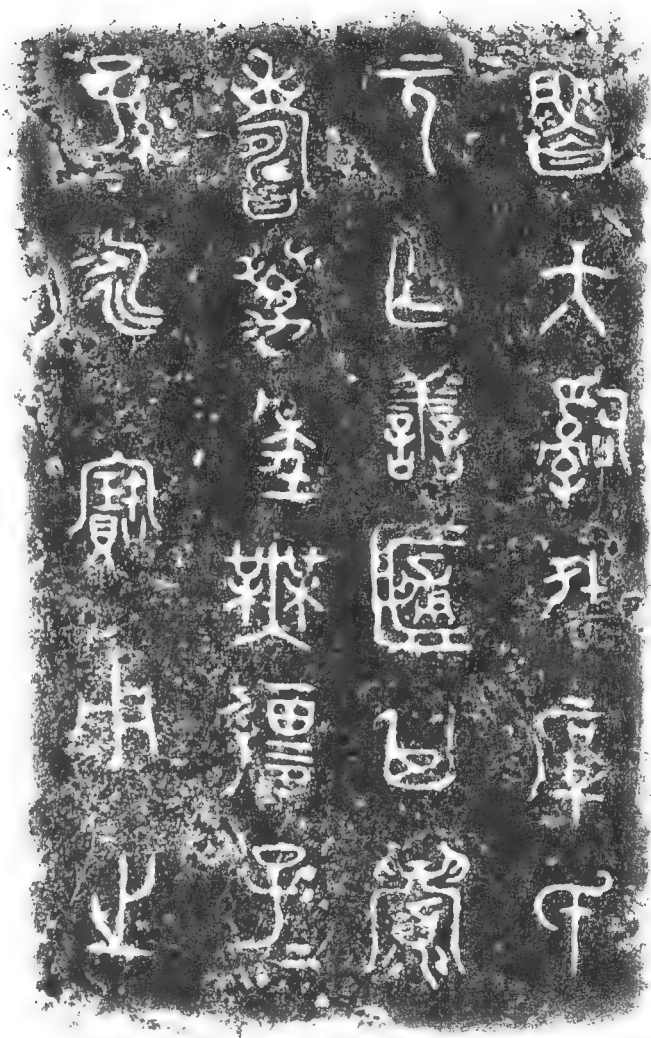 魯大𤔲徒厚氏
元乍善簠其眉
壽萬年無疆子＝
孫＝永寶用之